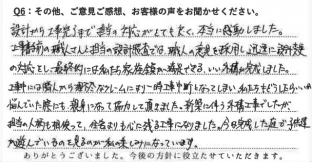 Q6：その他、ご意見ご感想、お客様の声をお聞かせください。
設計から工事完了まで担当の対応がとても良く、本当に感動しました。
工事前の職人さんと担当の設計調査では、職人の意見を採用し、迅速に設計変更
の対応をして最終的には私たち家族全員が満足できる、いい構が完成しました。
工事中には隣人から理不尽なクレームにより一時工事中断となってしまい私たちもどうしたらいいか
悩んでいた際にも、親身になって協力して頂きました。新築に伴う外構工事でしたが
担当の人柄も相俟って、住む家よりも心に残る工事になりました。今日完成した庭で子供達
が遊んでいるのを見るのが私の楽しみになっています。
ありがとうございました。今後の方針に役立たせていただきます。